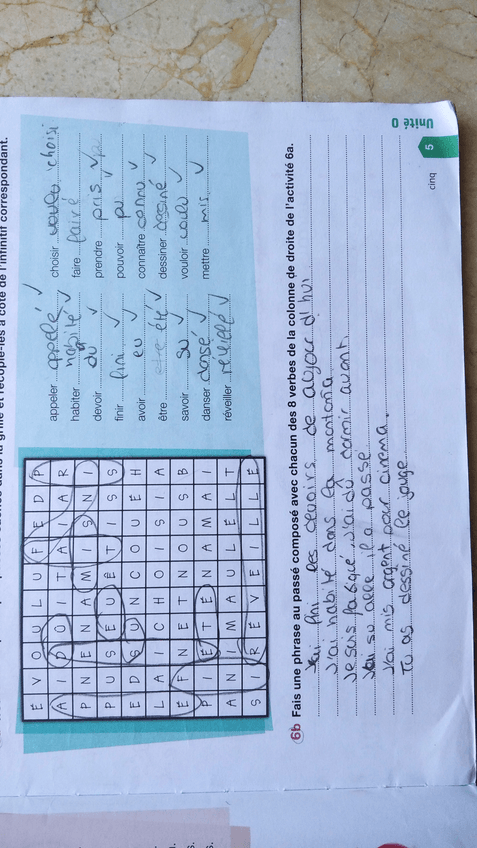 dans la grille et recopie-les à côté de l'infinitif correspondant.
E V O U L U F E D P
A I D O I T A I A R
P N E N A M I S N I
P U S E U É T I S S
E D S U N C O U É H
L A I C H O I S I A
É F N E T N O U S B
P I É T É N A M A I
A N I M A U L E L T
S I R É V E I L L É
appeler appelé ✓
habiter habité ✓
devoir dû ✓
finir fini ✓
avoir eu ✓
être été ✓
savoir su ✓
danser dansé ✓
réveiller réveillé ✓
choisir choisi
faire fairé
prendre pris ✓
pouvoir pu ✓
connaître connu ✓
dessiner dessiné ✓
vouloir voulu ✓
mettre mis ✓
6b Fais une phrase au passé composé avec chacun des 8 verbes de la colonne de droite de l'activité 6a.
J'ai fini les devoirs de aujour d'hui
J'ai habité dans la montana
Je suis fatiqué, J'ai dû dormir avant.
J'ai su elle il a passe
J'ai mis argent pour cinema.
Tu as dessiné le jouge
cinq
5
Unité 0